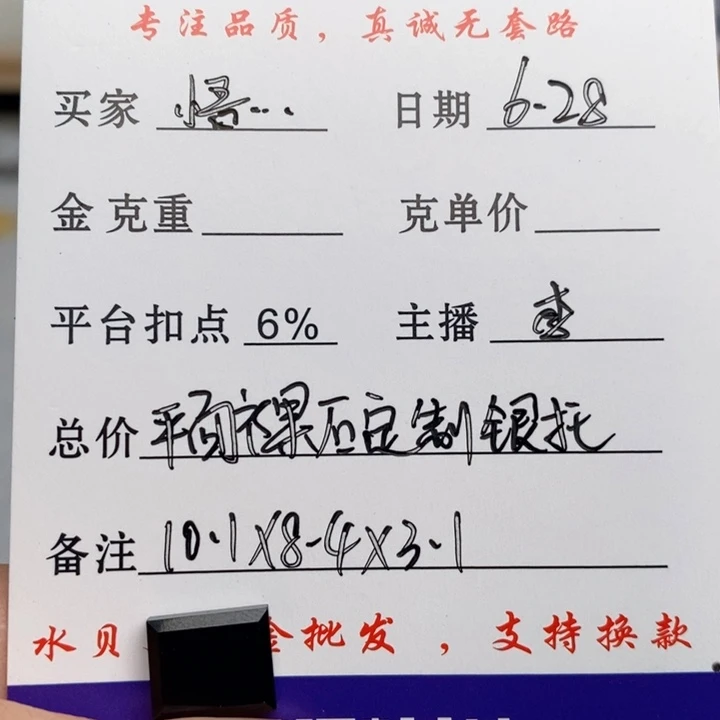 专注品质，真诚无套路
买家 悟... 日期 6-28
金克重 克单价
平台扣点 6% 主播
总价 平面裸石定制银托
备注 10.1X8.4X3.1
水贝 金批发，支持换款